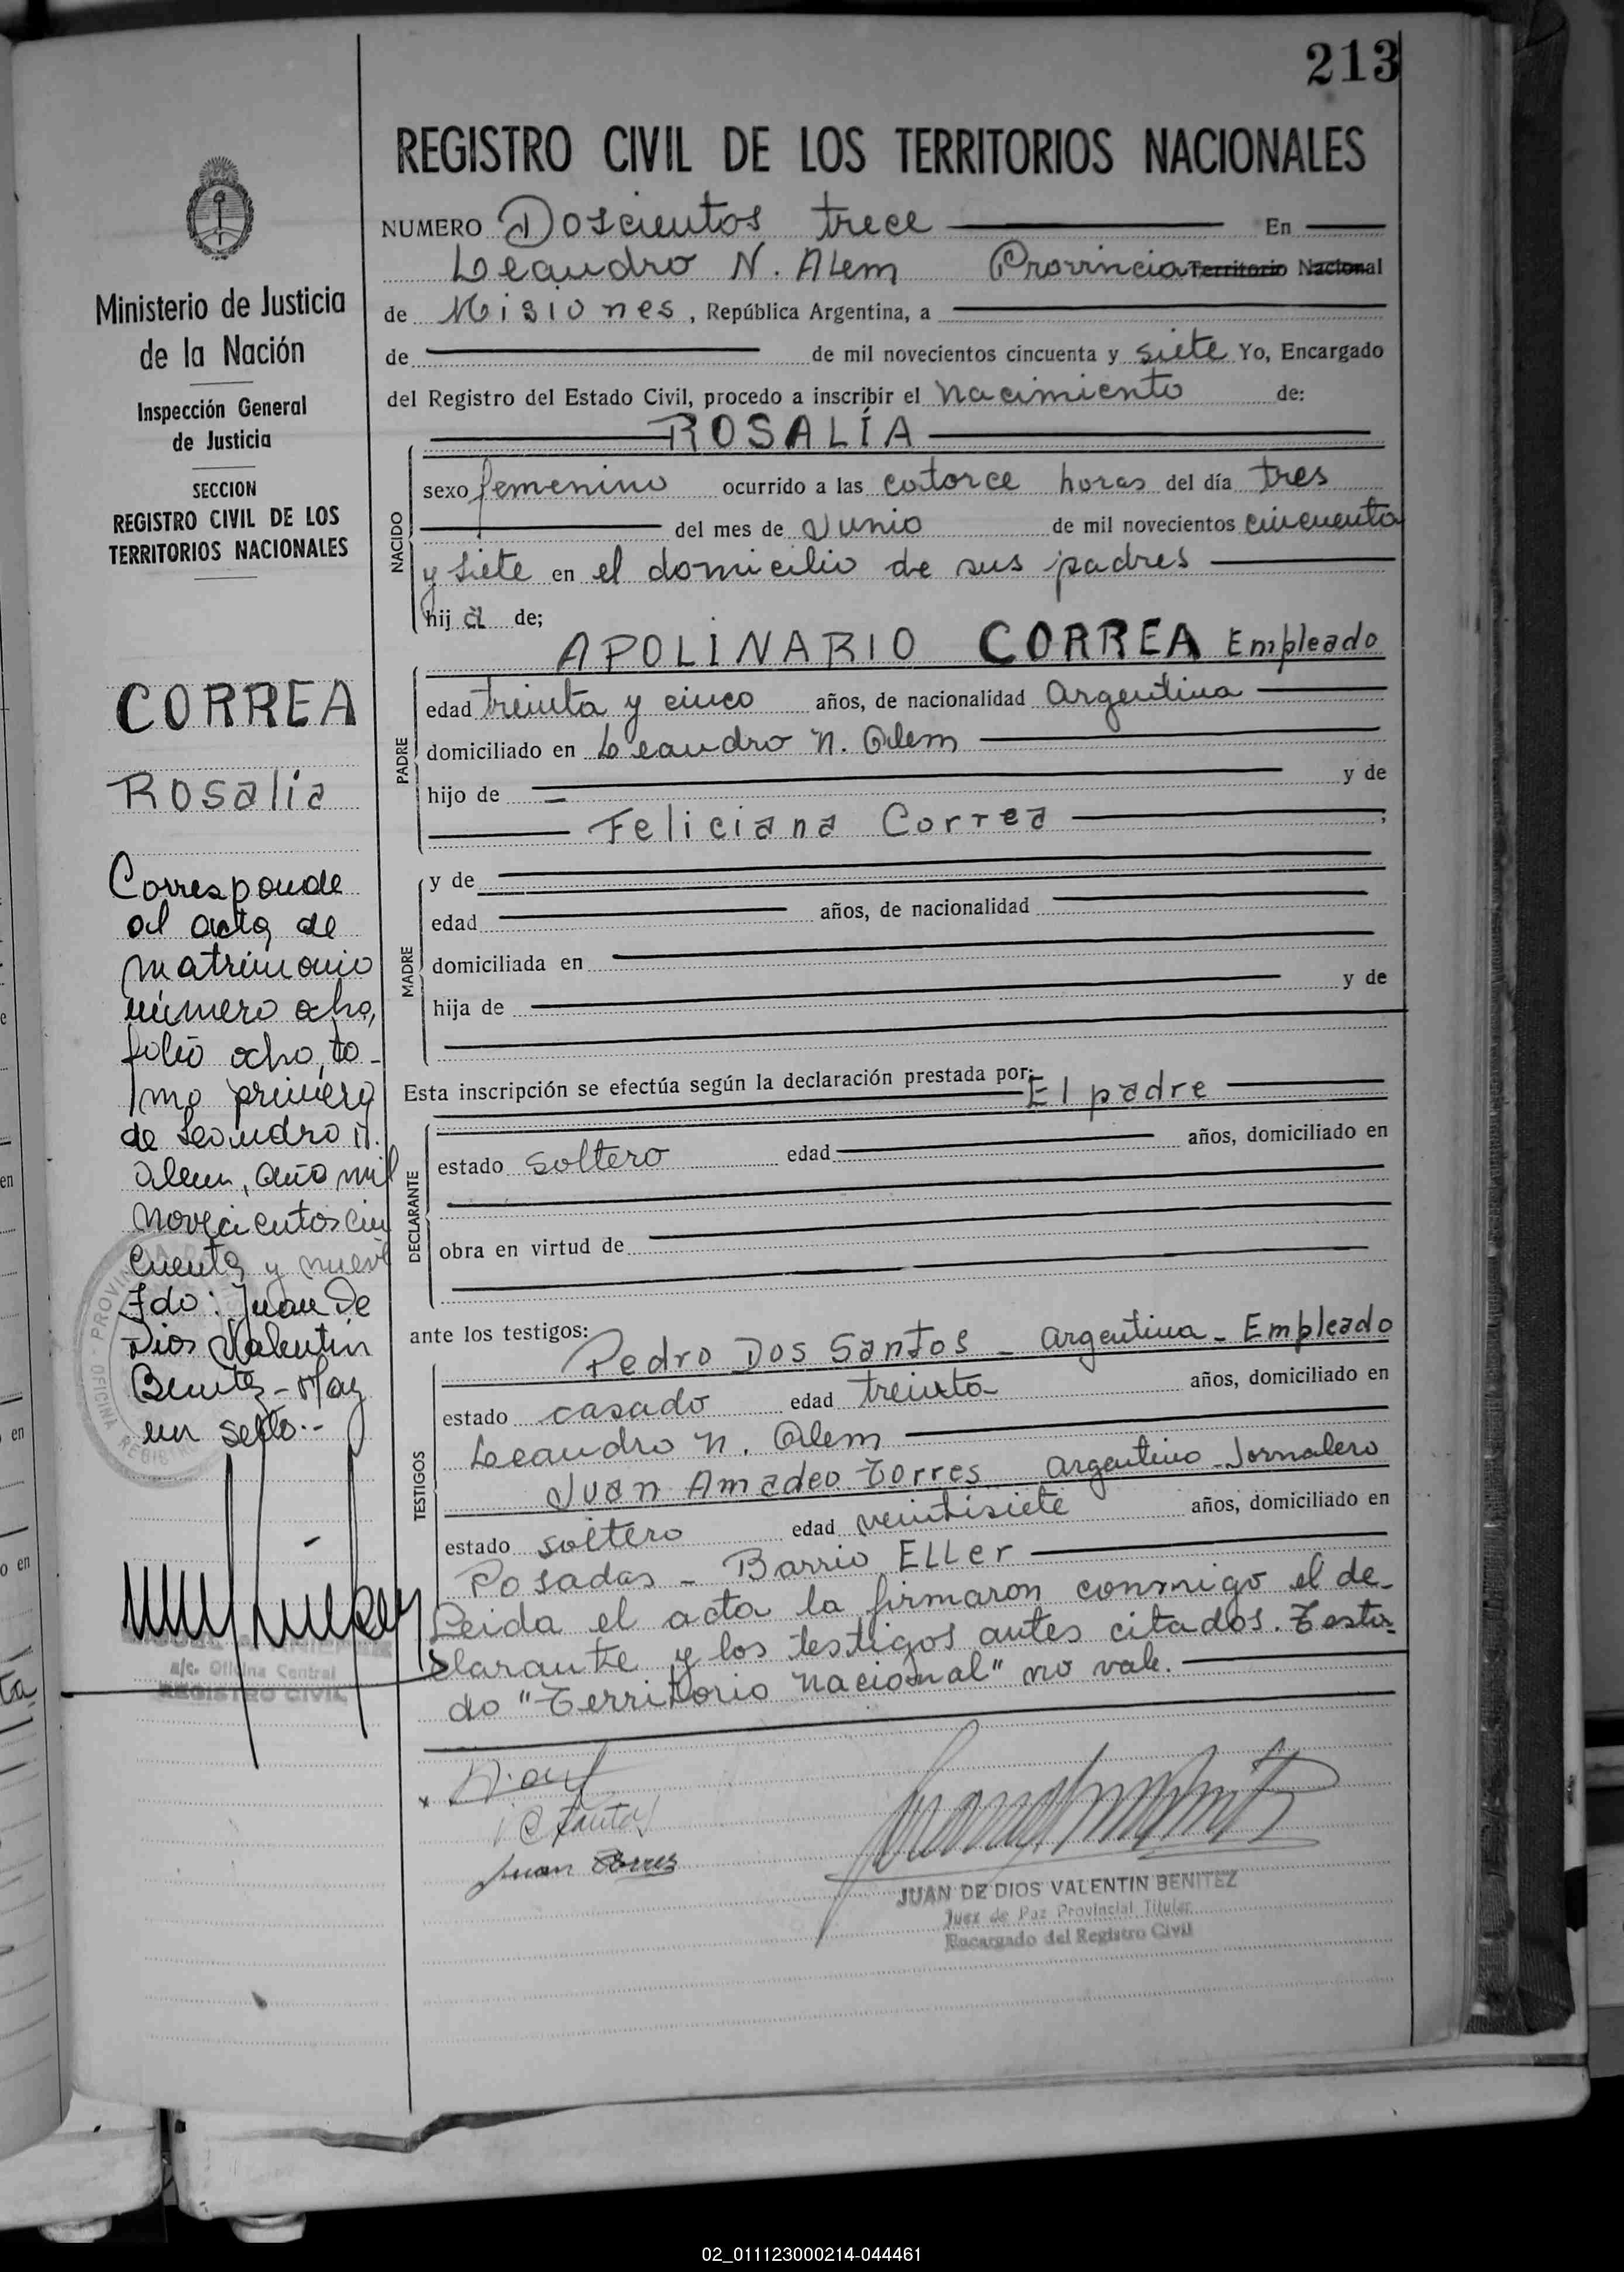 213
REGISTRO CIVIL DE LOS TERRITORIOS NACIONALES
NUMERO Doscientos trece En
Leandro N. Alem Provincia Territorio Nacional
de Misiones, República Argentina, a
de de mil novecientos cincuenta y siete Yo, Encargado
del Registro del Estado Civil, procedo a inscribir el nacimiento de:
ROSALÍA
NACIDO
sexo femenino ocurrido a las catorce horas del día tres
del mes de Junio de mil novecientos cincuenta
y siete en el domicilio de sus padres
hij a de;
APOLINARIO CORREA Empleado
PADRE
edad treinta y cinco años, de nacionalidad Argentina
domiciliado en Leandro N. Alem
hijo de y de
Feliciana Correa ;
MADRE
y de
edad años, de nacionalidad
domiciliada en
hija de y de
Esta inscripción se efectúa según la declaración prestada por: El padre
DECLARANTE
estado soltero edad años, domiciliado en
obra en virtud de
ante los testigos: Pedro Dos Santos - Argentina - Empleado
TESTIGOS
estado casado edad treinta años, domiciliado en
Leandro N. Alem
Juan Amadeo Torres Argentino - Jornalero
estado soltero edad veintisiete años, domiciliado en
Posadas - Barrio ELLer
Leida el acta la firmaron conmigo el de-
clarante y los testigos antes citados. Testa-
do "Territorio Nacional" no vale.
Juan Torres
JUAN DE DIOS VALENTIN BENITEZ
Juez de Paz Provincial Titular
Encargado del Registro Civil
Ministerio de Justicia
de la Nación
Inspección General
de Justicia
SECCION
REGISTRO CIVIL DE LOS
TERRITORIOS NACIONALES
CORREA
Rosalia
Corresponde
al acta de
matrimonio
número ocho,
folio ocho, to-
mo primero
de Leandro N.
Alem, año mil
novecientos cin
cuenta y nueve
Fdo: Juan De
Dios Valentin
Benitez - Hay
un sello.-
a/c. Oficina Central
REGISTRO CIVIL
02_011123000214-044461